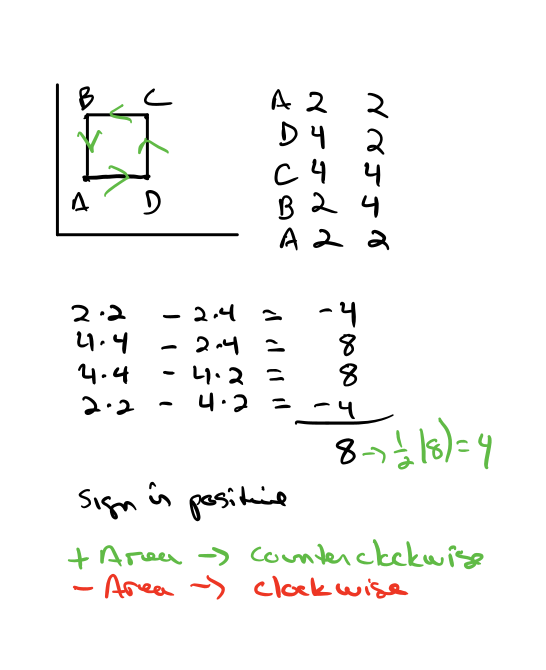 B C
A D
A 2 2
D 4 2
C 4 4
B 2 4
A 2 2
2·2 - 2·4 = -4
4·4 - 2·4 = 8
4·4 - 4·2 = 8
2·2 - 4·2 = -4
8 → 1/2 (8) = 4
Sign is positive
+ Area → counterclockwise
- Area → clockwise